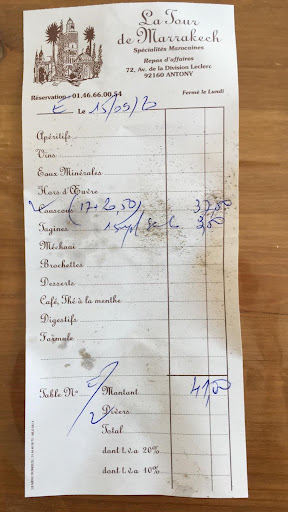 La Tour
de Marrakech
Spécialités Marocaines
Repas d'affaires
72, Av. de la Division Leclerc
92160 ANTONY
Réservation : 01.46.66.00.54 Fermé le Lundi
Le 15/09/20
Apéritifs
Vins
Eaux Minérales
Hors d'Œuvre
Couscous (17+20,50) 37,50
Tagines 3,50
Méchoui
Brochettes
Desserts
Café, Thé à la menthe
Digestifs
Formule
Table N° Montant 41,00
Divers
Total
dont t.v.a 20%
dont t.v.a 10%